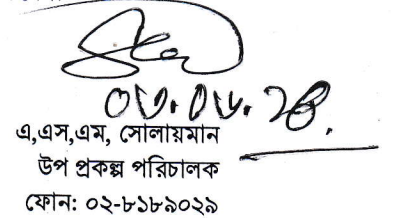 ০৩.০৬.২৪.
এ,এস,এম, সোলায়মান
উপ প্রকল্প পরিচালক
ফোন: ০২-৮১৮৯০২৯